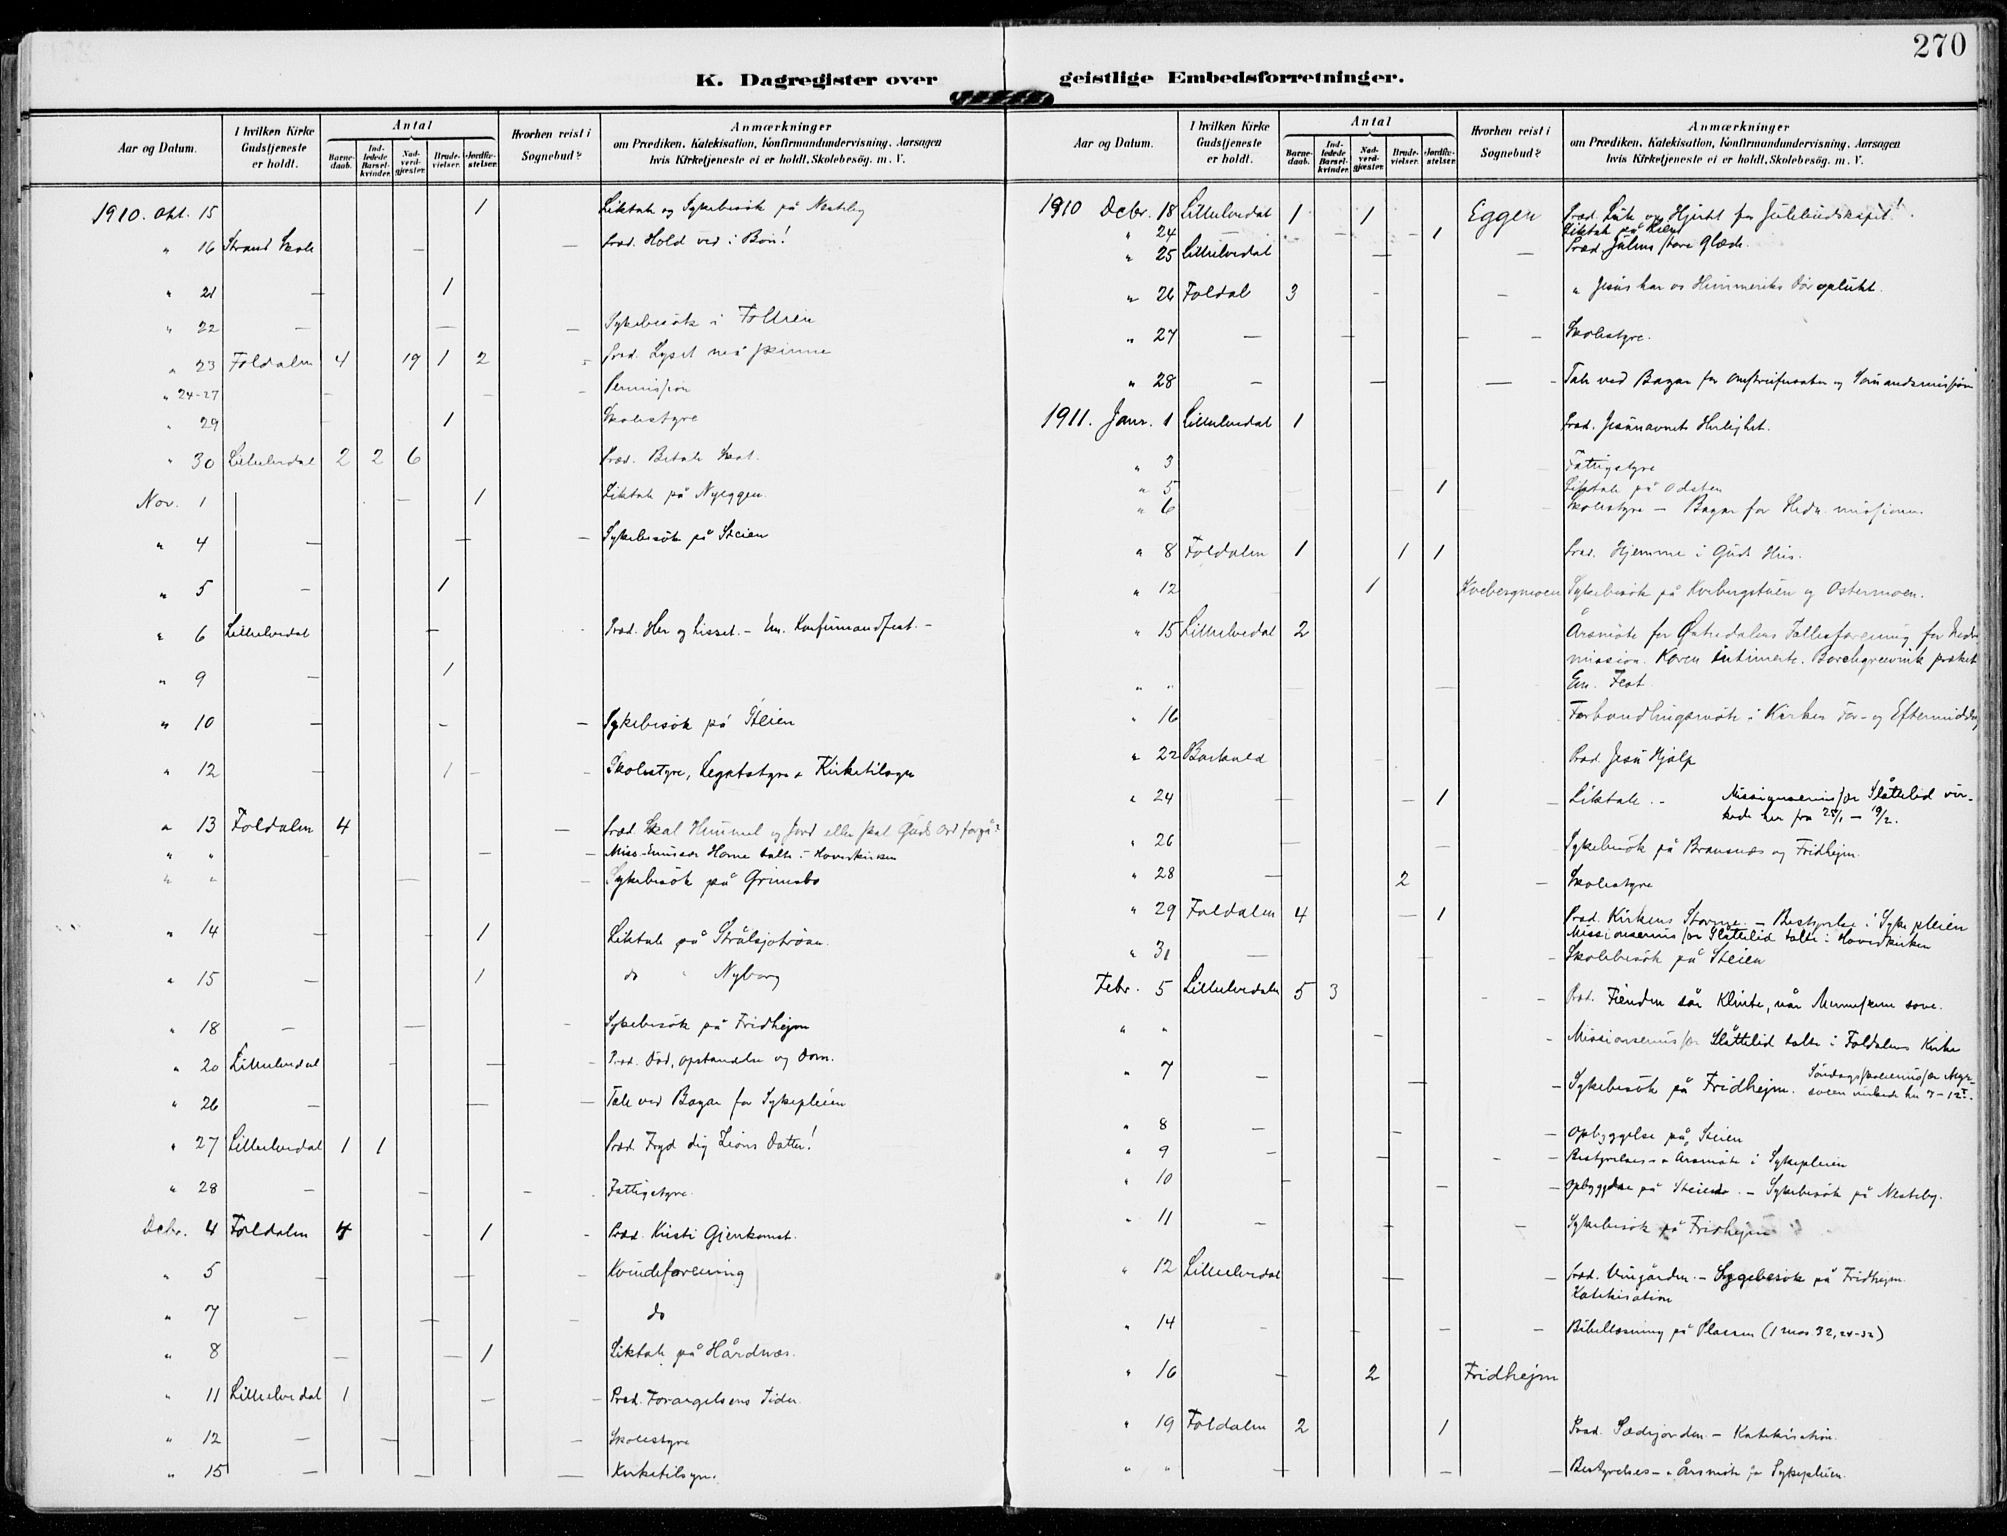 270
K. Dagregister over geistlige Embedsforretninger.
Aar og Datum. I hvilken Kirke Gudstjeneste er holdt. Antal Barnedaab. Indledede Barselkvinder. Nadverdgjæster. Brudevielser. Jordfæstelser. Hvorhen reist i Sognebud? Anmærkninger om Prædiken, Katekisation, Konfirmandundervisning, Aarsagen hvis Kirketjeneste ei er holdt, Skolebesøg. m. V.
1910. Okt. 15 1 Liktale og Sykebesök på Nesteby
" 16 Strand Skole — — Præd. Hold ved i Bön!
" 21 — 1
" 22 — — — Sykebesök i Folkien
" 23 Foldalen 4 19 1 2 - Præd. Lyset må skinne
" 24-27 — — — Permission
" 29 — 1 Skolestyre
" 30 Lilleelvedal 2 2 6 Præd. Betale Skat.
Nov. 1 — 1 Liktale på Nyeggen.
" 4 — — — Sykebesök på Steien
" 5 — 1
" 6 Lilleelvedal — - Præd. Her og hisset. – Em. Konfirmandfest. –
" 9 — 1
" 10 — - — Sykebesök på Steien
" 12 — 1 — - Skolestyre, Legatstyre & Kirketilsyn
" 13 Foldalen 4 — Præd. Skal Himmel og Jord eller skal Guds Ord forgå?
" " - — — Miss. Emissær Horne talte i Hovedkirken
" " — - Sykebesök på Grimsbo
" 14 — 1 Liktale på Strålsjötröen.
" 15 — 1 do " Nyborg
" 18 — — - Sykebesök på Fridhejm
" 20 Lilleelvedal — — - Præd. Död, opstandelse og dom.
" 26 — — — Tale ved Bazar for Sykepleien
" 27 Lilleelvedal 1 1 Præd. Fryd dig Zions Datter!
" 28 — — - - Fattigstyre.
Dcbr. 4 Foldalen 4 - 1 - Præd. Kristi Gjenkomst.
" 5 — — — Kvindeforening
" 7 — — — do
" 8 — — 1 Liktale på Hårdnæs.
" 11 Lilleelvedal 1 — - Præd. Forargelsens Tider
" 12 — — — Skolestyre
" 15 — — — Kirketilsyn.
Aar og Datum. I hvilken Kirke Gudstjeneste er holdt. Antal Barnedaab. Indledede Barselkvinder. Nadverdgjæster. Brudevielser. Jordfæstelser. Hvorhen reist i Sognebud? Anmærkninger om Prædiken, Katekisation, Konfirmandundervisning, Aarsagen hvis Kirketjeneste ei er holdt, Skolebesøg. m. V.
1910 Dcbr. 18 Lilleelvedal 1 1 Eggen Præd. Luk op Hjertet for Julebudskapet!
" 24 — - - - 1 Liktale på
" 25 Lilleelvedal — — Præd. Julens store Glæde.
" 26 Foldal 3 - - " Jesus har os Himmeriks Dör oplukt.
" 27 — — — - Skolestyre.
" 28 — — — - Tale ved Bazar for og Sömandsmissjon
1911. Janr. 1 Lilleelvedal 1 Præd. Jesunavnets Herlighet.
" 3 - Fattigstyre
" 5 - 1 Liktale på Odsten
" 6 - Skolestyre – Bazar for Hedn. missionen.
" 8 Foldalen 1 1 1 Præd. Hjemme i Guds Hus.
" 12 1 Kvebergmoen Sykebesök på Kvebergstuen og Ostermoen.
" 15 Lilleelvedal 2 Årsmöte for Østerdalens Fællesforening for Hedn.
mission. Karen intimerte. Borchgrevink præket
" " - — Em. Fest.
" 16 - Forhandlingsmöte i Kirken For- og Eftermiddag
" 22 Barkald - Præd. Jesu Hjelp
" 24 — - 1 — Liktale. – Missionsemissær Slåttelid vir-
kede her fra 25/1 – 9/2.
" 26 — — Sykebesök på Bransnæs og Fridhejm
" 28 — 2 — Skolestyre
" 29 Foldalen 4 — 1 Præd. Kirkens Storme. – Bestyrelse i Sykepleien
Missionsemissær Slåttelid talte i Hovedkirken
" 31 — — - Skolebesök på Steien
Febr. 5 Lilleelvedalen 5 3 - - Præd. Fienden sår Klinte, når Menneskene sove.
" " - - Missionsemissær Slåttelid talte i Foldalens Kirke
" 7 — — — Sykebesök på Fridhejm. Söndagsskoleemissær
virkede her 7–12.
" 8 — - — Opbyggelse på Steien
" 9 — — - - Bestyrelses- & Årsmöte i Sykepleien
" 10 — — Opbyggelse på Steien. – Sykebesök på Nesteby.
" 11 — - - Sykebesök på Fridhejm
" 12 Lilleelvedal — — Præd. Vingården. – Sygebesök på Fridhejm.
Katekisation
" 14 - - — - Bibellæsning på Plassen (1 Mos 32, 24-32)
" 16 — 2 Fridhejm
" 19 Foldalen 2 1 Præd. Sædejorden. – Katekisation.
" " — — — Bestyrelses- & Årsmöte for Sykepleien.